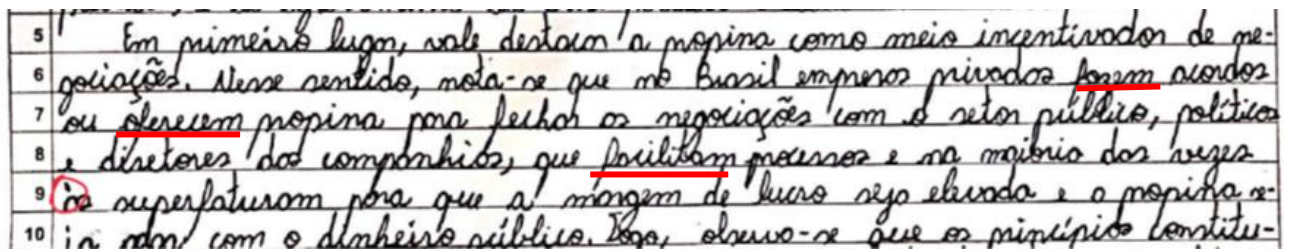 5 Em primeiro lugar, vale destacar a propina como meio incentivador de ne-
6 gociações. Nesse sentido, nota-se que no Brasil empresas privadas fazem acordos
7 ou oferecem propina para fechar as negociações com o setor público, políticos
8 e diretores das companhias, que facilitam processos e na maioria das vezes
9 às superfaturam para que a margem de lucro seja elevada e a propina se-
10 ja com o dinheiro público. Logo, observa-se que os princípios constitu-